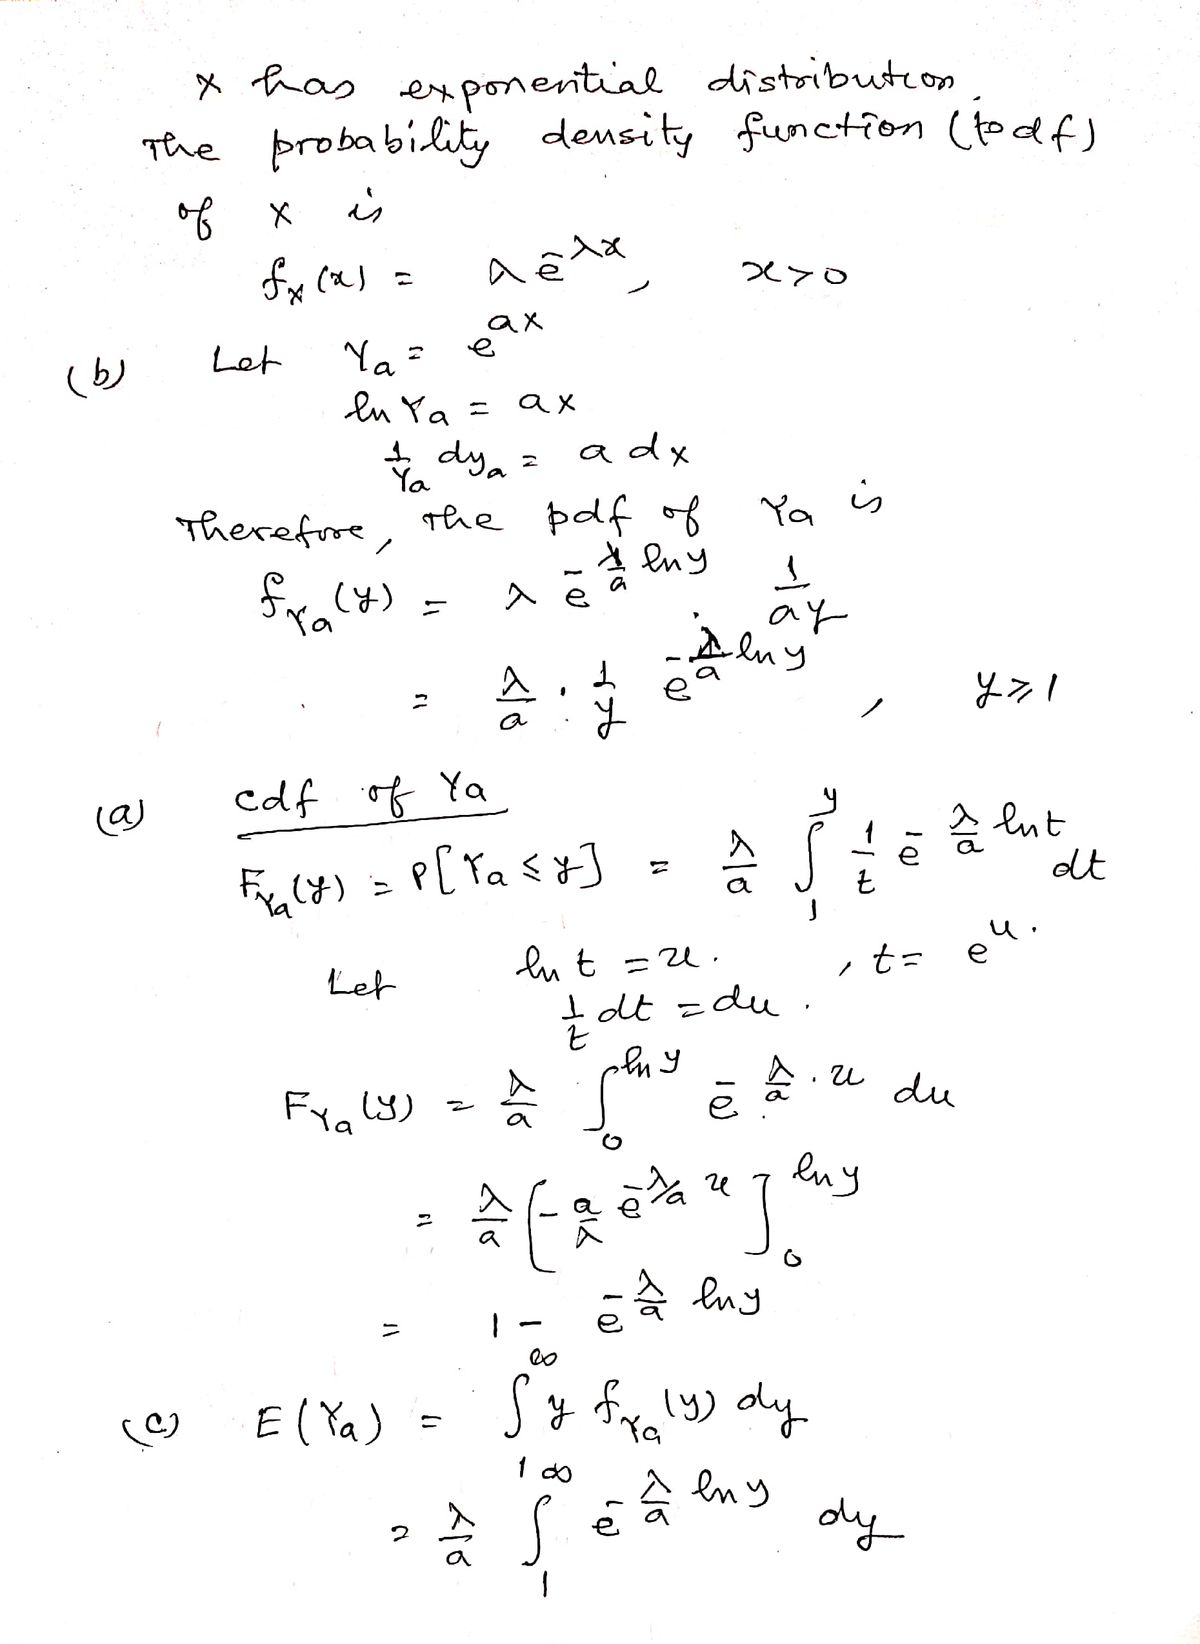 X has exponential distribution.
The probability density function (pdf)
of X is
f_X(x) = λ e^{-λx}, x>0
(b) Let Y_a = e^{aX}
ln Y_a = aX
1/Y_a dy_a = a dx
Therefore, the pdf of Y_a is
f_{Y_a}(y) = λ e^{-λ/a ln y} 1/ay
= λ/a · 1/y e^{-λ/a ln y}, y⩾1
(a) cdf of Y_a
F_{Y_a}(y) = P[Y_a ≤ y] = λ/a ∫_1^y 1/t e^{-λ/a ln t} dt
Let ln t = u. , t = e^u.
1/t dt = du.
F_{Y_a}(y) = λ/a ∫_0^{ln y} e^{-λ/a · u} du
= λ/a [-a/λ e^{-λ/a u}]_0^{ln y}
= 1 - e^{-λ/a ln y}
(c) E(Y_a) = ∫_1^∞ y f_{Y_a}(y) dy
= λ/a ∫_1^∞ e^{-λ/a ln y} dy